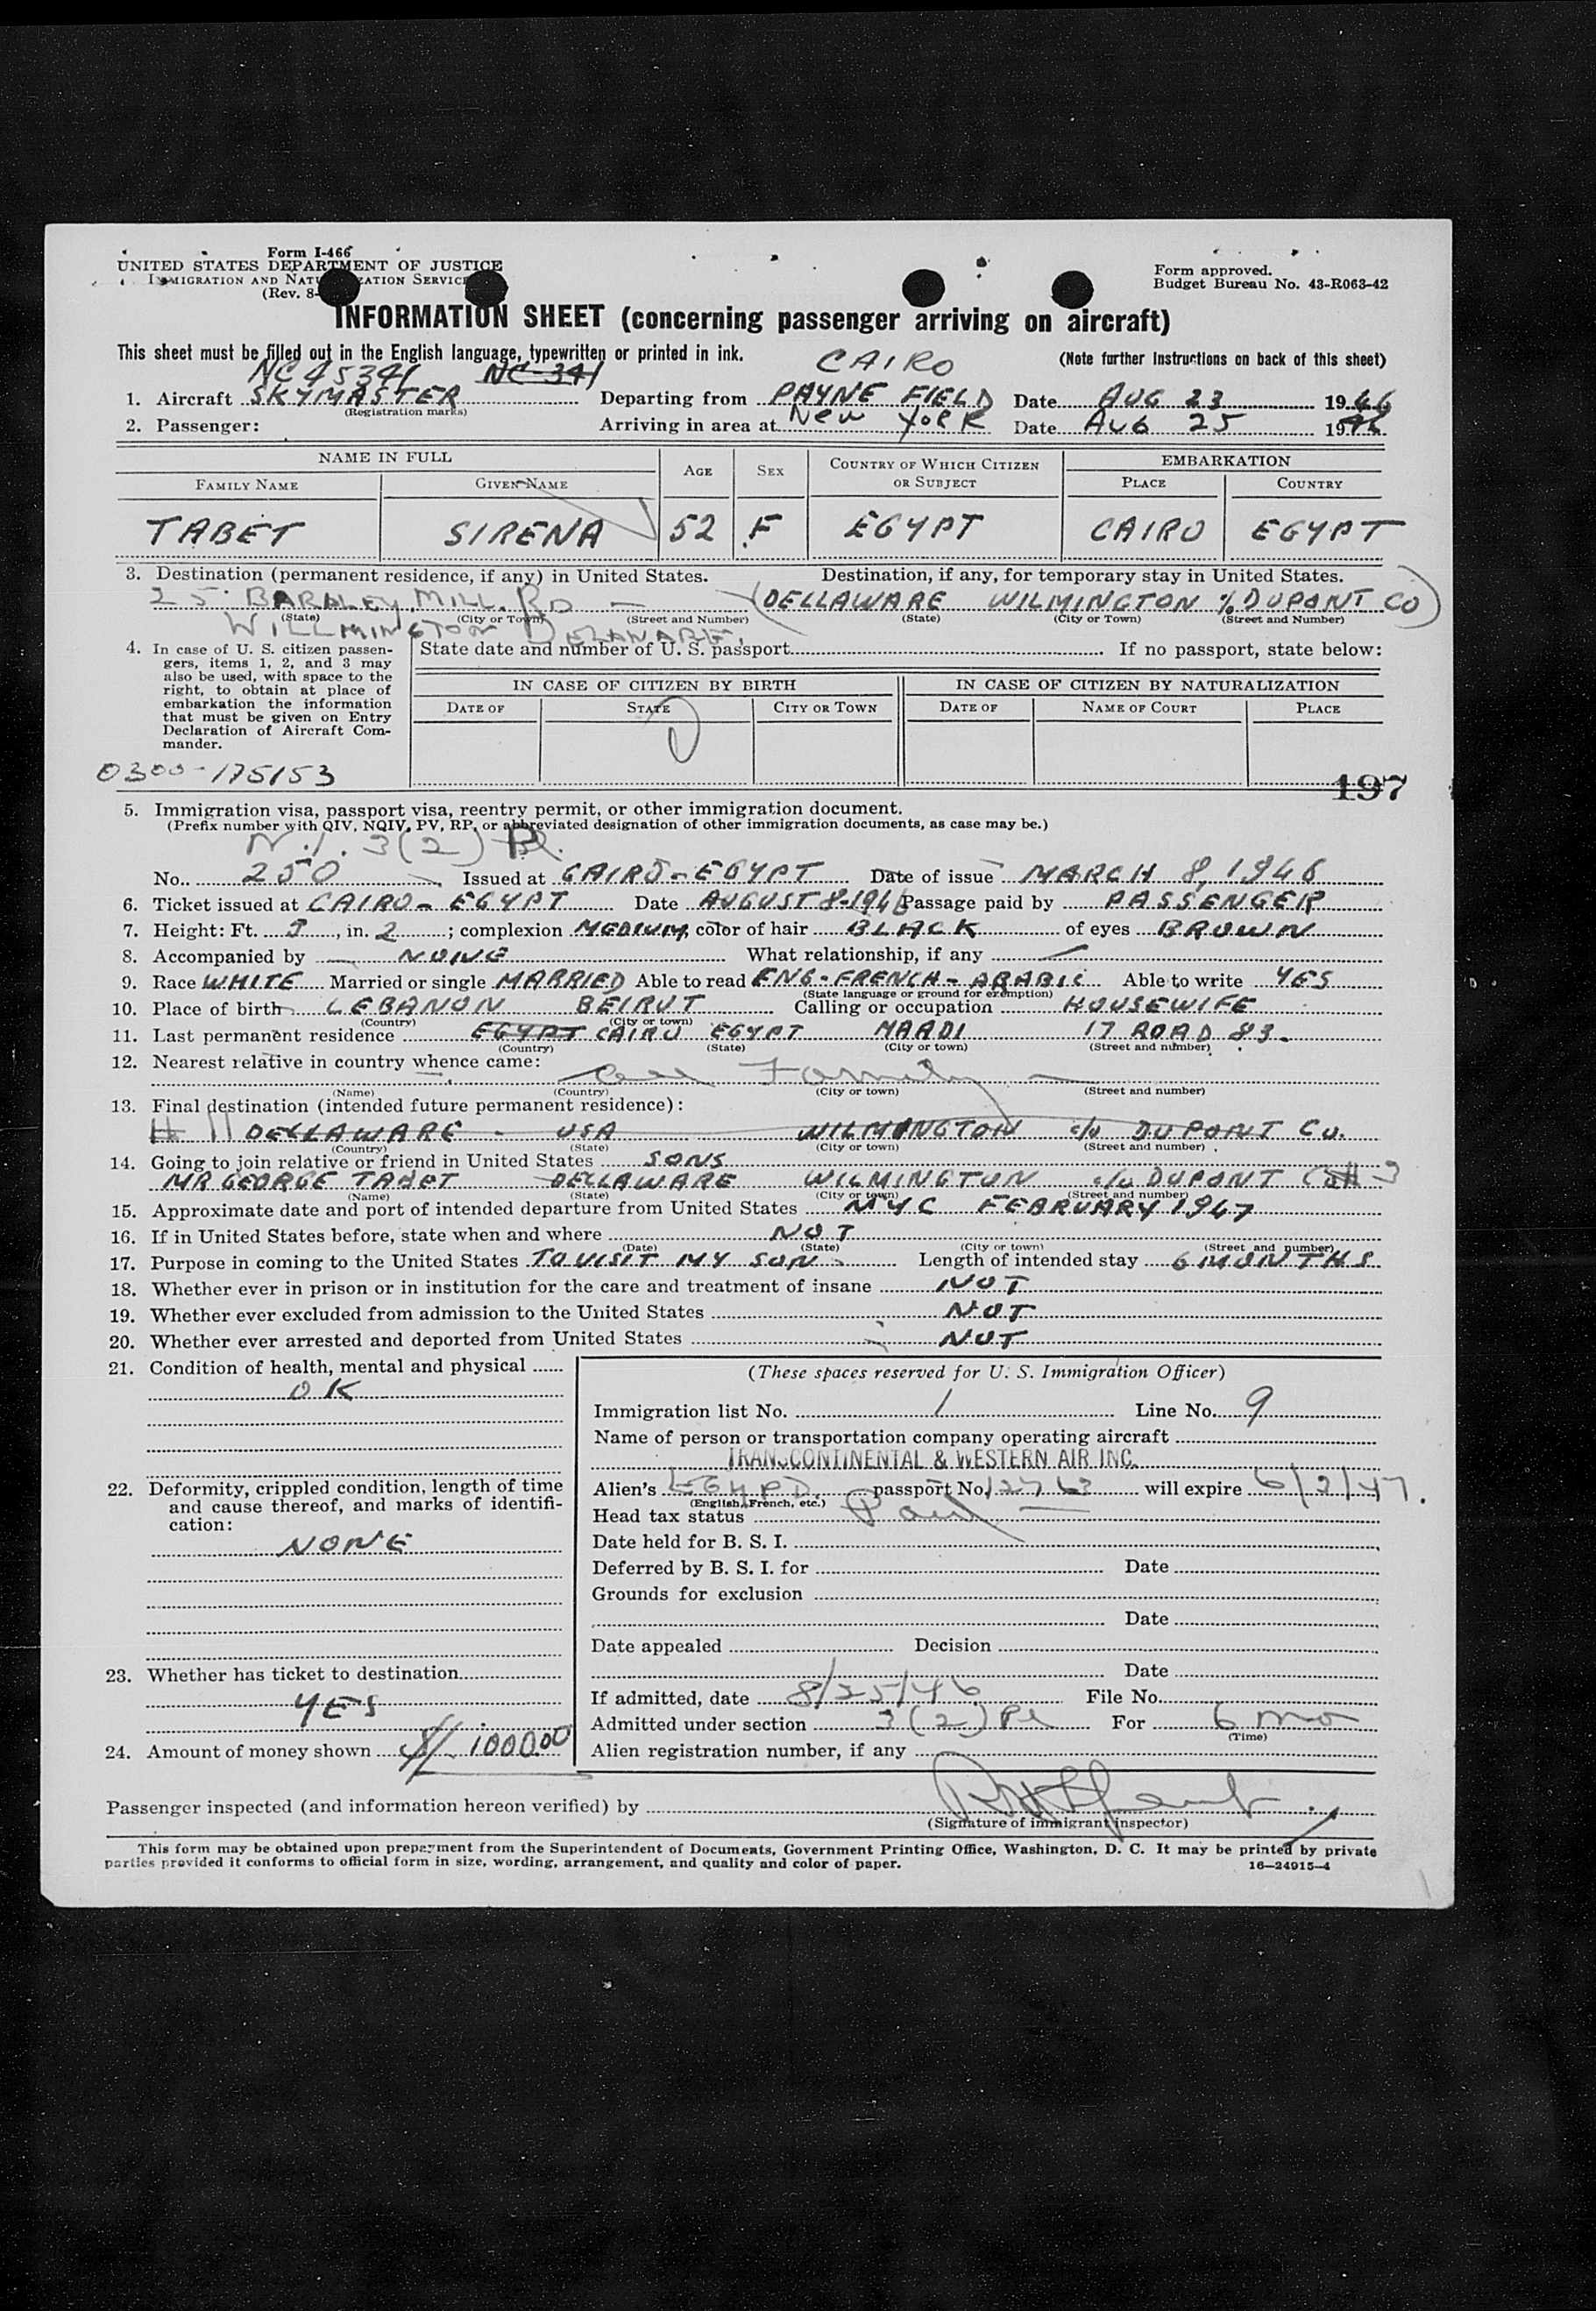 Form I-466
UNITED STATES DEPARTMENT OF JUSTICE
IMMIGRATION AND NATURALIZATION SERVICE
(Rev. 8-
Form approved.
Budget Bureau No. 43-R063-42
INFORMATION SHEET (concerning passenger arriving on aircraft)
This sheet must be filled out in the English language, typewritten or printed in ink.
(Note further instructions on back of this sheet)
NC 45341 NC-341 CAIRO
1. Aircraft SKYMASTER Departing from PAYNE FIELD Date AUG 23 1946
(Registration marks)
2. Passenger: Arriving in area at New YORK Date AUG 25 1946
NAME IN FULL AGE SEX COUNTRY OF WHICH CITIZEN OR SUBJECT EMBARKATION
FAMILY NAME GIVEN NAME PLACE COUNTRY
TABET SIRENA 52 F EGYPT CAIRO EGYPT
3. Destination (permanent residence, if any) in United States. Destination, if any, for temporary stay in United States.
25 BARDLEY MILL RD — (DELLAWARE WILMINGTON % DUPONT CO)
(State) (City or Town) (Street and Number) (State) (City or Town) (Street and Number)
WILLMINGTON DELAWARE.
4. In case of U. S. citizen passengers, items 1, 2, and 3 may also be used, with space to the right, to obtain at place of embarkation the information that must be given on Entry Declaration of Aircraft Commander.
State date and number of U. S. passport If no passport, state below:
IN CASE OF CITIZEN BY BIRTH IN CASE OF CITIZEN BY NATURALIZATION
DATE OF STATE CITY OR TOWN DATE OF NAME OF COURT PLACE
0300-175153
197
5. Immigration visa, passport visa, reentry permit, or other immigration document.
(Prefix number with QIV, NQIV, PV, RP, or abbreviated designation of other immigration documents, as case may be.)
3(2)
No. 250 Issued at CAIRO - EGYPT Date of issue MARCH 8, 1946
6. Ticket issued at CAIRO - EGYPT Date AUGUST 8-1946 Passage paid by PASSENGER
7. Height: Ft. 5, in. 2; complexion MEDIUM, color of hair BLACK of eyes BROWN
8. Accompanied by — NONE What relationship, if any —
9. Race WHITE Married or single MARRIED Able to read ENG - FRENCH - ARABIC Able to write YES
(State language or ground for exemption)
10. Place of birth LEBANON BEIRUT Calling or occupation HOUSEWIFE
(Country) (City or town)
11. Last permanent residence EGYPT CAIRO EGYPT MAADI 17 ROAD 83.
(Country) (State) (City or town) (Street and number)
12. Nearest relative in country whence came:
Family —
(Name) (Country) (City or town) (Street and number)
13. Final destination (intended future permanent residence):
DELLAWARE - USA WILMINGTON c/o DUPONT Co.
(Country) (State) (City or town) (Street and number)
14. Going to join relative or friend in United States SONS
MR GEORGE TABET DELLAWARE WILMINGTON c/o DUPONT Co # 3
(Name) (State) (City or town) (Street and number)
15. Approximate date and port of intended departure from United States NYC FEBRUARY 1947
16. If in United States before, state when and where NOT
(Date) (State) (City or town) (Street and number)
17. Purpose in coming to the United States TO VISIT MY SON Length of intended stay 6 MONTHS
18. Whether ever in prison or in institution for the care and treatment of insane NOT
19. Whether ever excluded from admission to the United States NOT
20. Whether ever arrested and deported from United States NOT
21. Condition of health, mental and physical
OK
22. Deformity, crippled condition, length of time and cause thereof, and marks of identification:
NONE
23. Whether has ticket to destination
YES
24. Amount of money shown $ 1000.00
(These spaces reserved for U. S. Immigration Officer)
Immigration list No. 1 Line No. 9
Name of person or transportation company operating aircraft
TRANSCONTINENTAL & WESTERN AIR INC.
Alien's passport No. 12763 will expire 6/2/47.
(English, French, etc.)
Head tax status Paid —
Date held for B. S. I.
Deferred by B. S. I. for Date
Grounds for exclusion
Date
Date appealed Decision
Date
If admitted, date 8/25/46 File No.
Admitted under section 3(2) For 6 mo
(Time)
Alien registration number, if any
Passenger inspected (and information hereon verified) by
(Signature of immigrant inspector)
This form may be obtained upon prepayment from the Superintendent of Documents, Government Printing Office, Washington, D. C. It may be printed by private
parties provided it conforms to official form in size, wording, arrangement, and quality and color of paper.
16—24915-4